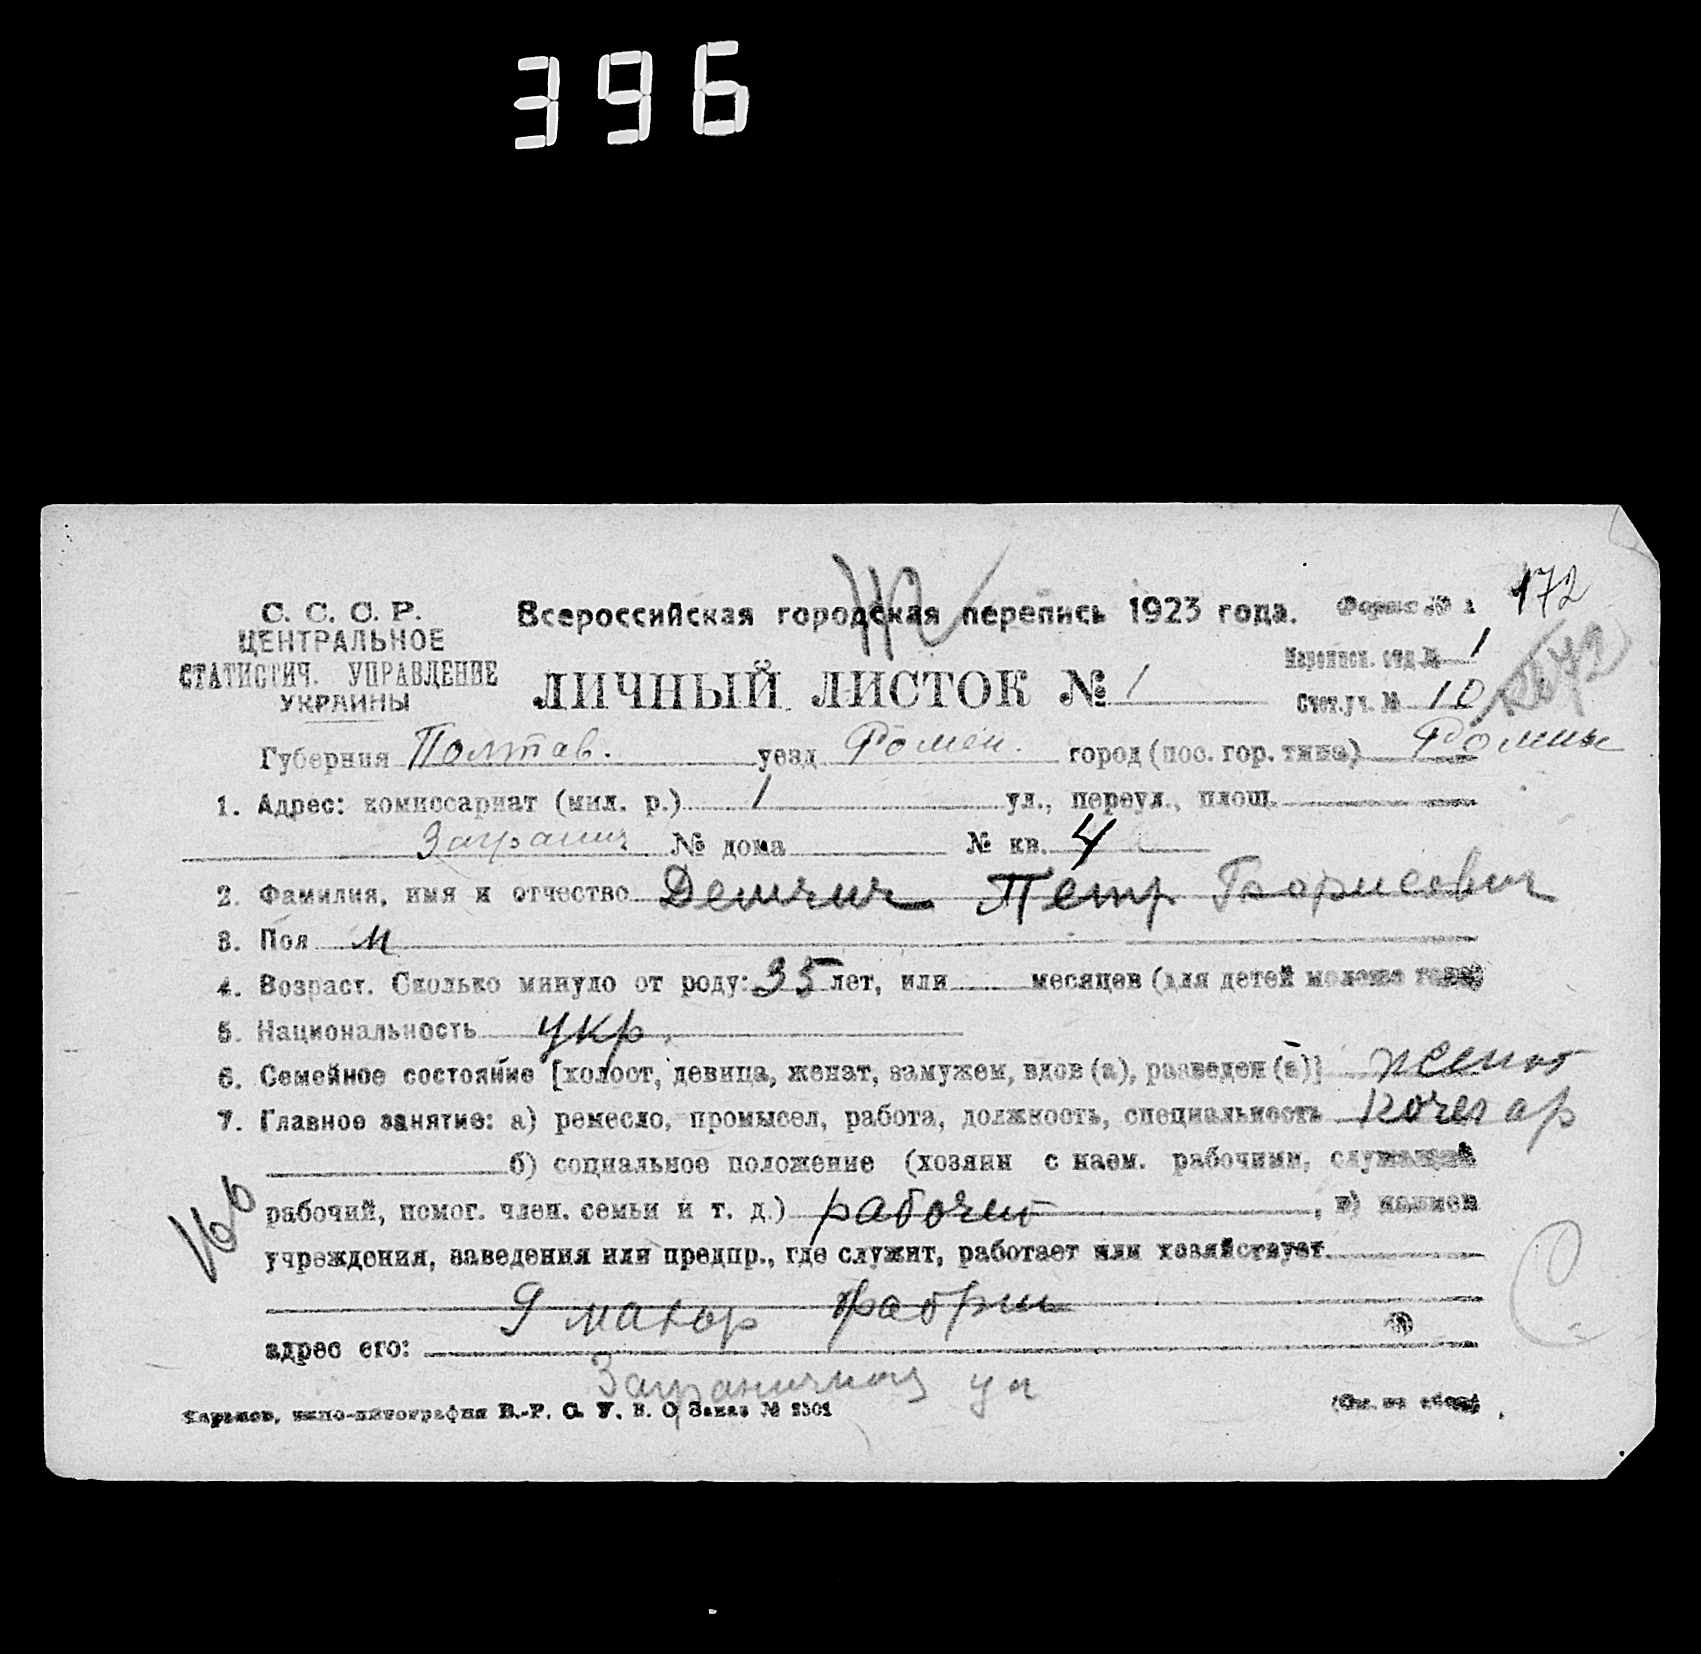 396
С. С. С. Р.
ЦЕНТРАЛЬНОЕ
СТАТИСТИЧ. УПРАВЛЕНИЕ
УКРАИНЫ
Всероссийская городская перепись 1923 года. Форма № 1 172
ЛИЧНЫЙ ЛИСТОК № 1
Переписн. отд. № 1
Счет. уч. № 10
Губерния Полтав. уезд Ромен. город (пос. гор. типа) Ромны
1. Адрес: комиссариат (мил. р.) 1 ул., переул., площ.
Загранич № дома № кв. 4
2. Фамилия, имя и отчество Демчич Петр Борисович
3. Пол м
4. Возраст. Сколько минуло от роду: 35 лет, или месяцев (для детей моложе года)
5. Национальность укр.
6. Семейное состояние [холост, девица, женат, замужем, вдов (а), разведен (а)] женат
7. Главное занятие: а) ремесло, промысел, работа, должность, специальность кочегар
б) социальное положение (хозяин с наем. рабочими, служащий
рабочий, помог. член. семьи и т. д.) рабочий, в) наимен
учреждения, заведения или предпр., где служит, работает или хозяйствует.
9 махор фабрик
адрес его:
Заграничная ул
Харьков, типо-литография В.-Р. С. У. В. О. Заказ № 2301
(См. на обор.)